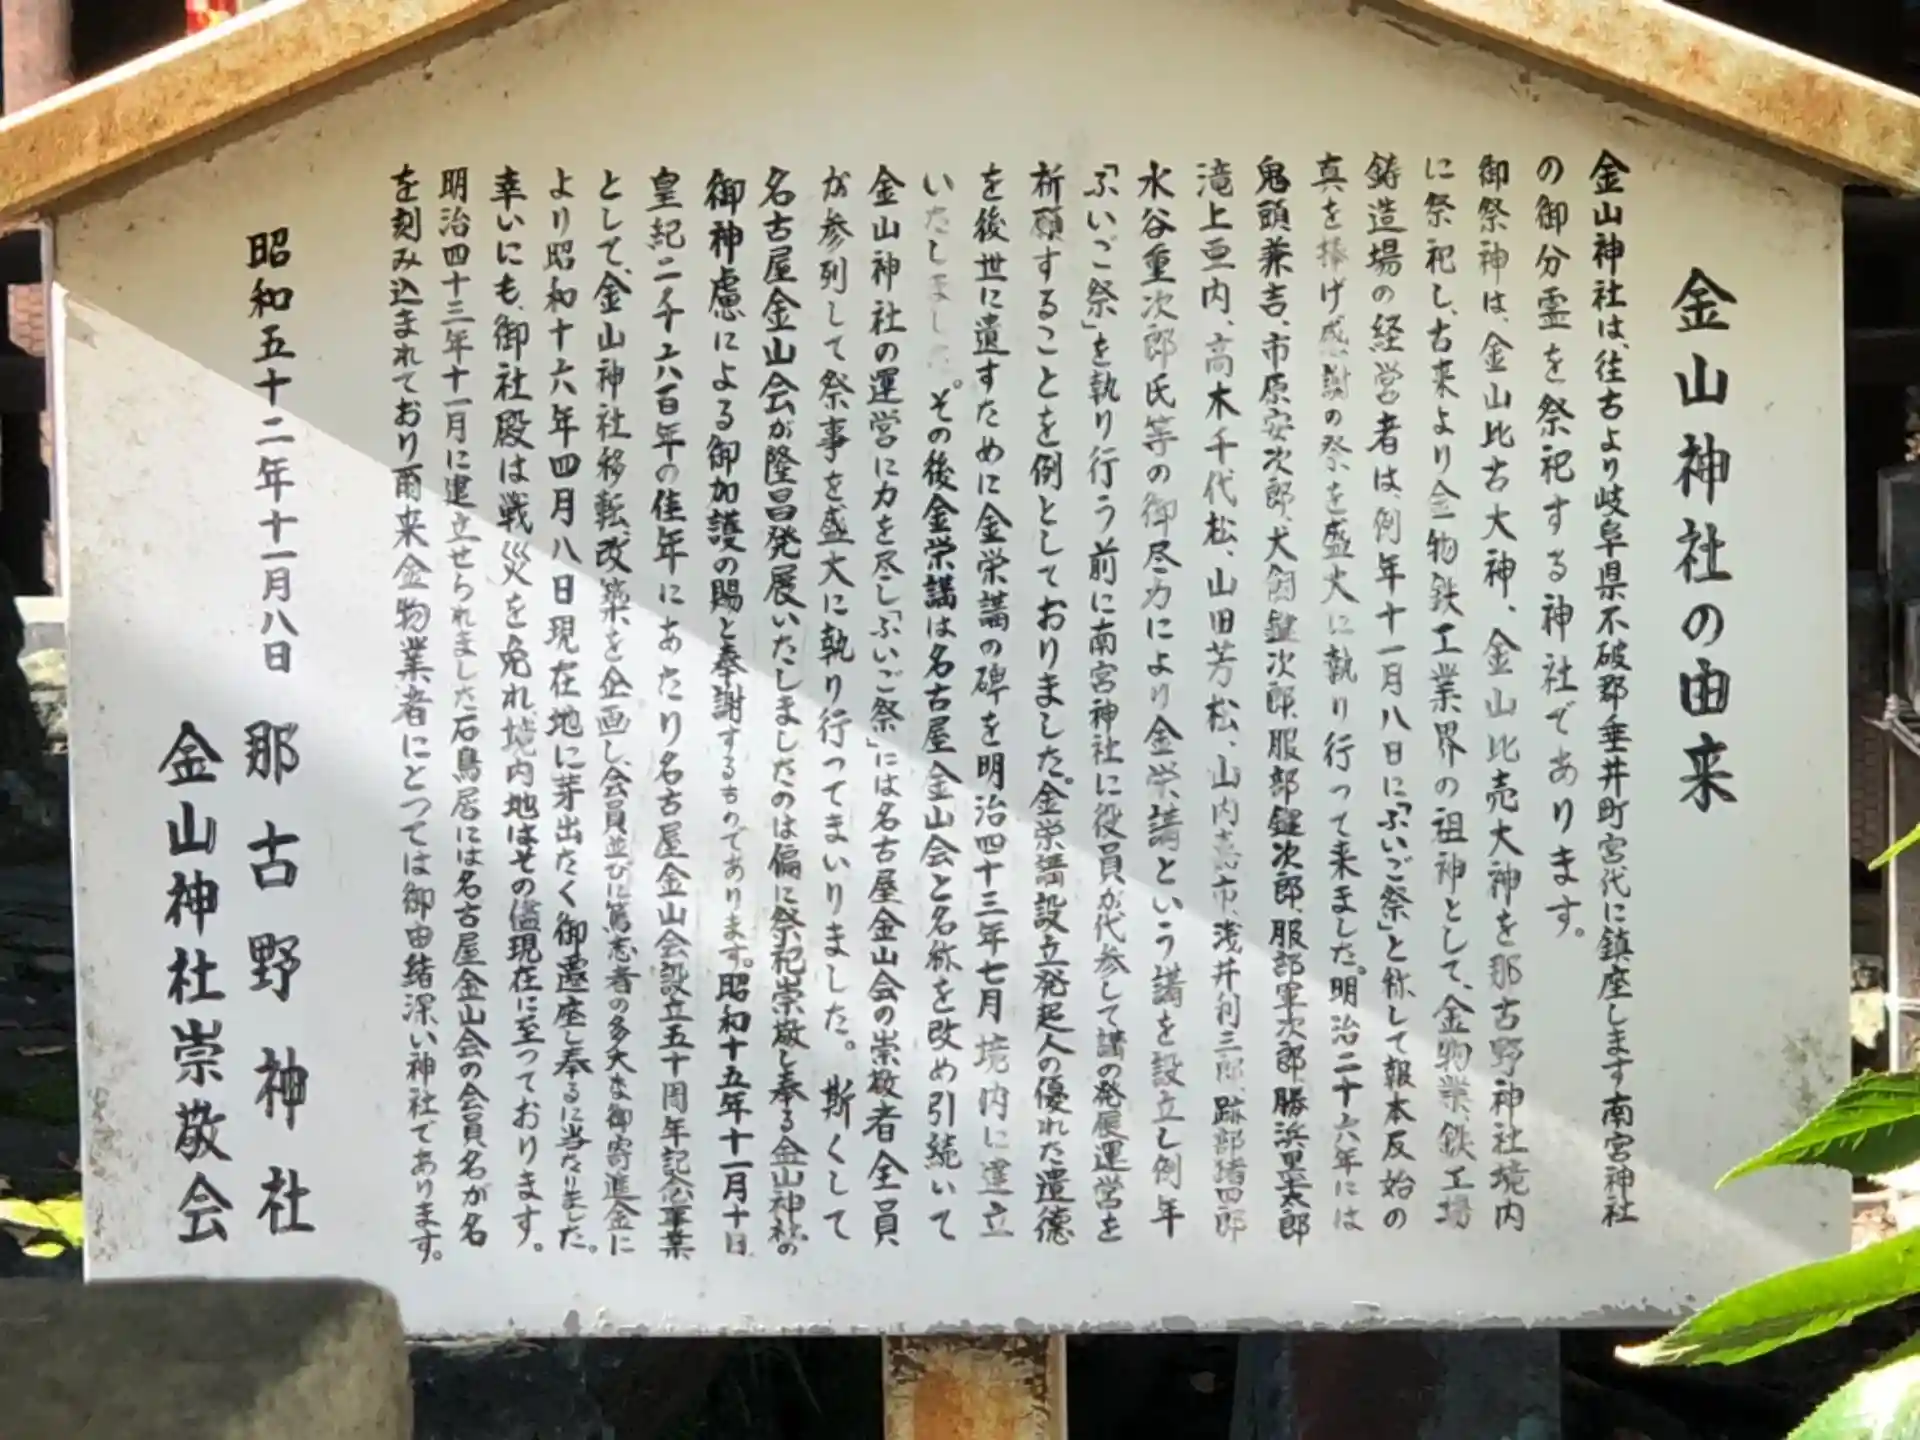 金山神社の由来
金山神社は、往古より岐阜県不破郡垂井町宮代に鎮座します南宮神社
の御分霊を祭祀する神社であります。
御祭神は、金山比古大神、金山比売大神を那古野神社境内
に祭祀し、古来より金物鉄工業界の祖神として、金物業、鉄工場
鋳造場の経営者は、例年十一月八日に「ふいご祭」と称して報本反始の
真を捧げ感謝の祭を盛大に執り行って来ました。明治二十六年には
鬼頭兼吉、市原安次郎、犬飼鍵次郎、服部鍵次郎、服部軍次郎、勝浜里太郎
滝上亘内、高木千代松、山田芳松、山内市、浅井利三郎、跡部猪四郎
水谷重次郎氏等の御尽力により金栄講という講を設立し例年
「ふいご祭」を執り行う前に南宮神社に役員が代参して講の発展運営を
祈願することを例としておりました。金栄講設立発起人の優れた遺徳
を後世に遺すために金栄講の碑を明治四十三年七月境内に建立
いたしました。その後金栄講は名古屋金山会と名称を改め引続いて
金山神社の運営に力を尽し「ふいご祭」には名古屋金山会の崇敬者全員
が参列して祭事を盛大に執り行ってまいりました。斯くして
名古屋金山会が隆昌発展いたしましたのは偏に祭祀崇敬し奉る金山神社の
御神慮による御加護の賜と奉謝するものであります。昭和十五年十一月十日
皇紀二千六百年の佳年にあたり名古屋金山会設立五十周年記念事業
として、金山神社移転、改築を企画し、会員並びに篤志者の多大な御寄進金に
より昭和十六年四月八日現在地に芽出たく御遷座し奉るに当たりました。
幸いにも、御社殿は戦災を免れ、境内地はその儘現在に至っております。
明治四十三年十一月に建立せられました石鳥居には名古屋金山会の会員名が名
を刻み込まれており爾来金物業者にとっては御由緒深い神社であります。
昭和五十二年十一月八日 那古野神社
金山神社崇敬会